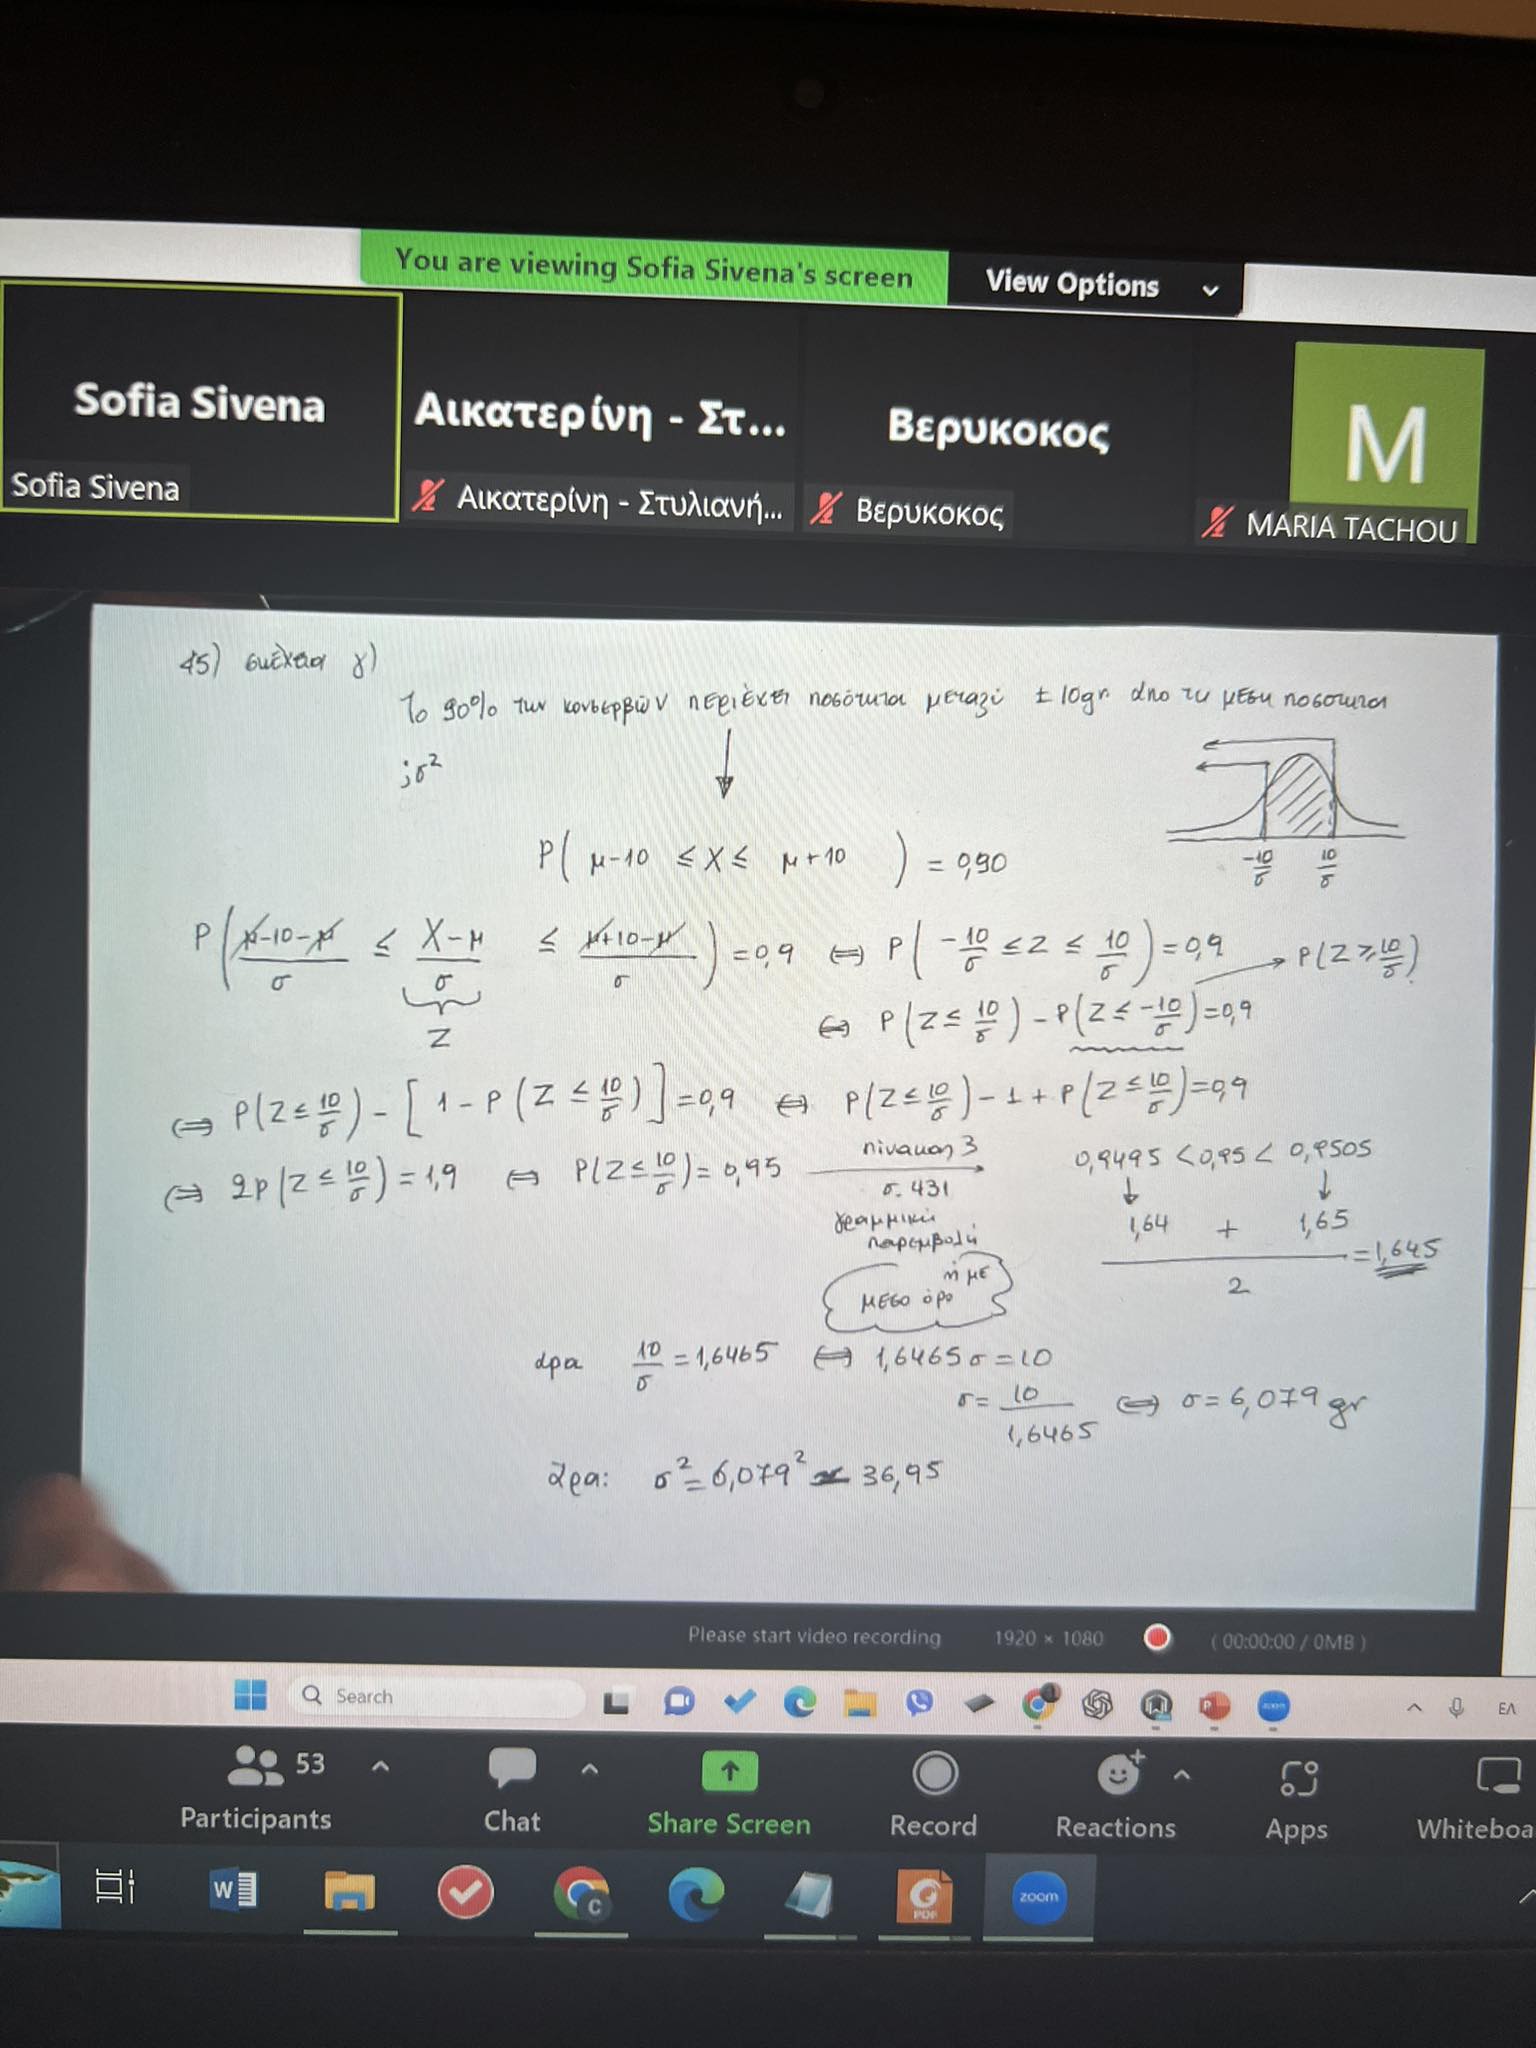 You are viewing Sofia Sivena's screen View Options
Sofia Sivena
Sofia Sivena
Αικατερίνη - Στ...
Αικατερίνη - Στυλιανή...
Βερυκοκος
Βερυκοκος
M
MARIA TACHOU
45) συνέχεια γ)
Το 90% των κονσερβών περιέχει ποσότητα μεταξύ ± 10gr απο τη μεση ποσοτητα
; σ²
-10/σ 10/σ
P( μ-10 ≤ X ≤ μ+10 ) = 0,90
P( (μ-10-μ)/σ ≤ (X-μ)/σ ≤ (μ+10-μ)/σ ) = 0,9 ⇔ P( -10/σ ≤ Z ≤ 10/σ ) = 0,9 → P(Z ≥ 10/σ)
Z
⇔ P(Z ≤ 10/σ) - P(Z ≤ -10/σ) = 0,9
⇔ P(Z ≤ 10/σ) - [1 - P(Z ≤ 10/σ)] = 0,9 ⇔ P(Z ≤ 10/σ) - 1 + P(Z ≤ 10/σ) = 0,9
⇔ 2P(Z ≤ 10/σ) = 1,9 ⇔ P(Z ≤ 10/σ) = 0,95 πίνακας 3 0,9495 < 0,95 < 0,9505
σ. 431
γραμμική
παρεμβολή
ή με
μέσο όρο
(1,64 + 1,65)/2 = 1,645
άρα 10/σ = 1,6465 ⇔ 1,6465 σ = 10
σ = 10/1,6465 ⇔ σ = 6,079 gr
Άρα: σ² = 6,079² ≈ 36,95
Please start video recording 1920 × 1080 (00:00:00 / 0MB)
Search
zoom
ΕΛ
53
Participants
Chat
Share Screen
Record
Reactions
Apps
Whiteboa
W
C
PDF
zoom